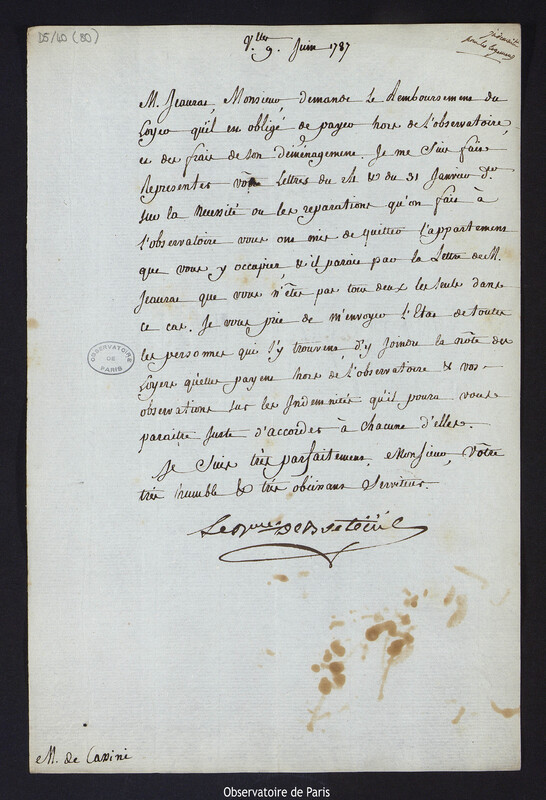 D5/40 (80)
V.lles 9. Juin 1787
M. Jeaurat, Monsieur, demande le Remboursement du
Loyer qu'il est obligé de payer hors de l'observatoire,
et des frais de son déménagement. Je me suis fait
Représenter vos Lettres du 24 & du 31 Janvier d.er
sur la Nécessité ou les reparations qu'on fait à
l'observatoire vous ont mis de quitter l'appartement
que vous y occupiez, & il paroit par la Lettre de M.
Jeaurat que vous n'êtes pas tous deux les seuls dans
ce cas. Je vous prie de m'envoyer l'Etat de toutes
les personnes qui s'y trouvent, d'y joindre la note des
Loyers qu'elles payent hors de l'observatoire & vos
observations sur les Indemnités qu'il poura vous
paraître juste d'accorder à chacune d'elles.
Je suis très parfaitement, Monsieur, Votre
très humble & très obéissant Serviteur.
Le Baron De Breteüil
OBSERVATOIRE DE PARIS
M. de Cassini
Observatoire de Paris